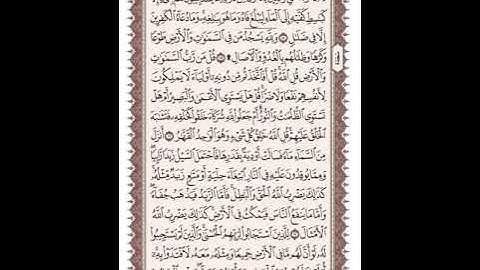 كَبَٰسِطِ كَفَّيْهِ إِلَى ٱلْمَآءِ لِيَبْلُغَ فَاهُ وَمَا هُوَ بِبَٰلِغِهِۦ وَمَا دُعَآءُ ٱلْكَٰفِرِينَ
إِلَّا فِى ضَلَٰلٍ ١٤ وَلِلَّهِ يَسْجُدُ مَن فِى ٱلسَّمَٰوَٰتِ وَٱلْأَرْضِ طَوْعًا
وَكَرْهًا وَظِلَٰلُهُم بِٱلْغُدُوِّ وَٱلْءَاصَالِ ۩ ١٥ قُلْ مَن رَّبُّ ٱلسَّمَٰوَٰتِ
وَٱلْأَرْضِ قُلِ ٱللَّهُ قُلْ أَفَٱتَّخَذْتُم مِّن دُونِهِۦٓ أَوْلِيَآءَ لَا يَمْلِكُونَ
لِأَنفُسِهِمْ نَفْعًا وَلَا ضَرًّا قُلْ هَلْ يَسْتَوِى ٱلْأَعْمَىٰ وَٱلْبَصِيرُ أَمْ هَلْ
تَسْتَوِى ٱلظُّلُمَٰتُ وَٱلنُّورُ أَمْ جَعَلُوا۟ لِلَّهِ شُرَكَآءَ خَلَقُوا۟ كَخَلْقِهِۦ فَتَشَٰبَهَ
ٱلْخَلْقُ عَلَيْهِمْ قُلِ ٱللَّهُ خَٰلِقُ كُلِّ شَىْءٍ وَهُوَ ٱلْوَٰحِدُ ٱلْقَهَّٰرُ ١٦ أَنزَلَ
مِنَ ٱلسَّمَآءِ مَآءً فَسَالَتْ أَوْدِيَةٌۢ بِقَدَرِهَا فَٱحْتَمَلَ ٱلسَّيْلُ زَبَدًا رَّابِيًا
وَمِمَّا يُوقِدُونَ عَلَيْهِ فِى ٱلنَّارِ ٱبْتِغَآءَ حِلْيَةٍ أَوْ مَتَٰعٍ زَبَدٌ مِّثْلُهُۥ
كَذَٰلِكَ يَضْرِبُ ٱللَّهُ ٱلْحَقَّ وَٱلْبَٰطِلَ فَأَمَّا ٱلزَّبَدُ فَيَذْهَبُ جُفَآءً
وَأَمَّا مَا يَنفَعُ ٱلنَّاسَ فَيَمْكُثُ فِى ٱلْأَرْضِ كَذَٰلِكَ يَضْرِبُ ٱللَّهُ
ٱلْأَمْثَالَ ١٧ لِلَّذِينَ ٱسْتَجَابُوا۟ لِرَبِّهِمُ ٱلْحُسْنَىٰ وَٱلَّذِينَ لَمْ يَسْتَجِيبُوا۟
لَهُۥ لَوْ أَنَّ لَهُم مَّا فِى ٱلْأَرْضِ جَمِيعًا وَمِثْلَهُۥ مَعَهُۥ لَٱفْتَدَوْا۟ بِهِۦٓ